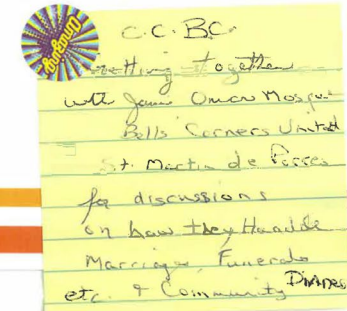 C.C.BC.
Getting together
with Omar Mosque
Bells Corners United
St. Martin de Porres
for discussions
on how they Handle
Marriage Funerals
etc. & Community Dinners